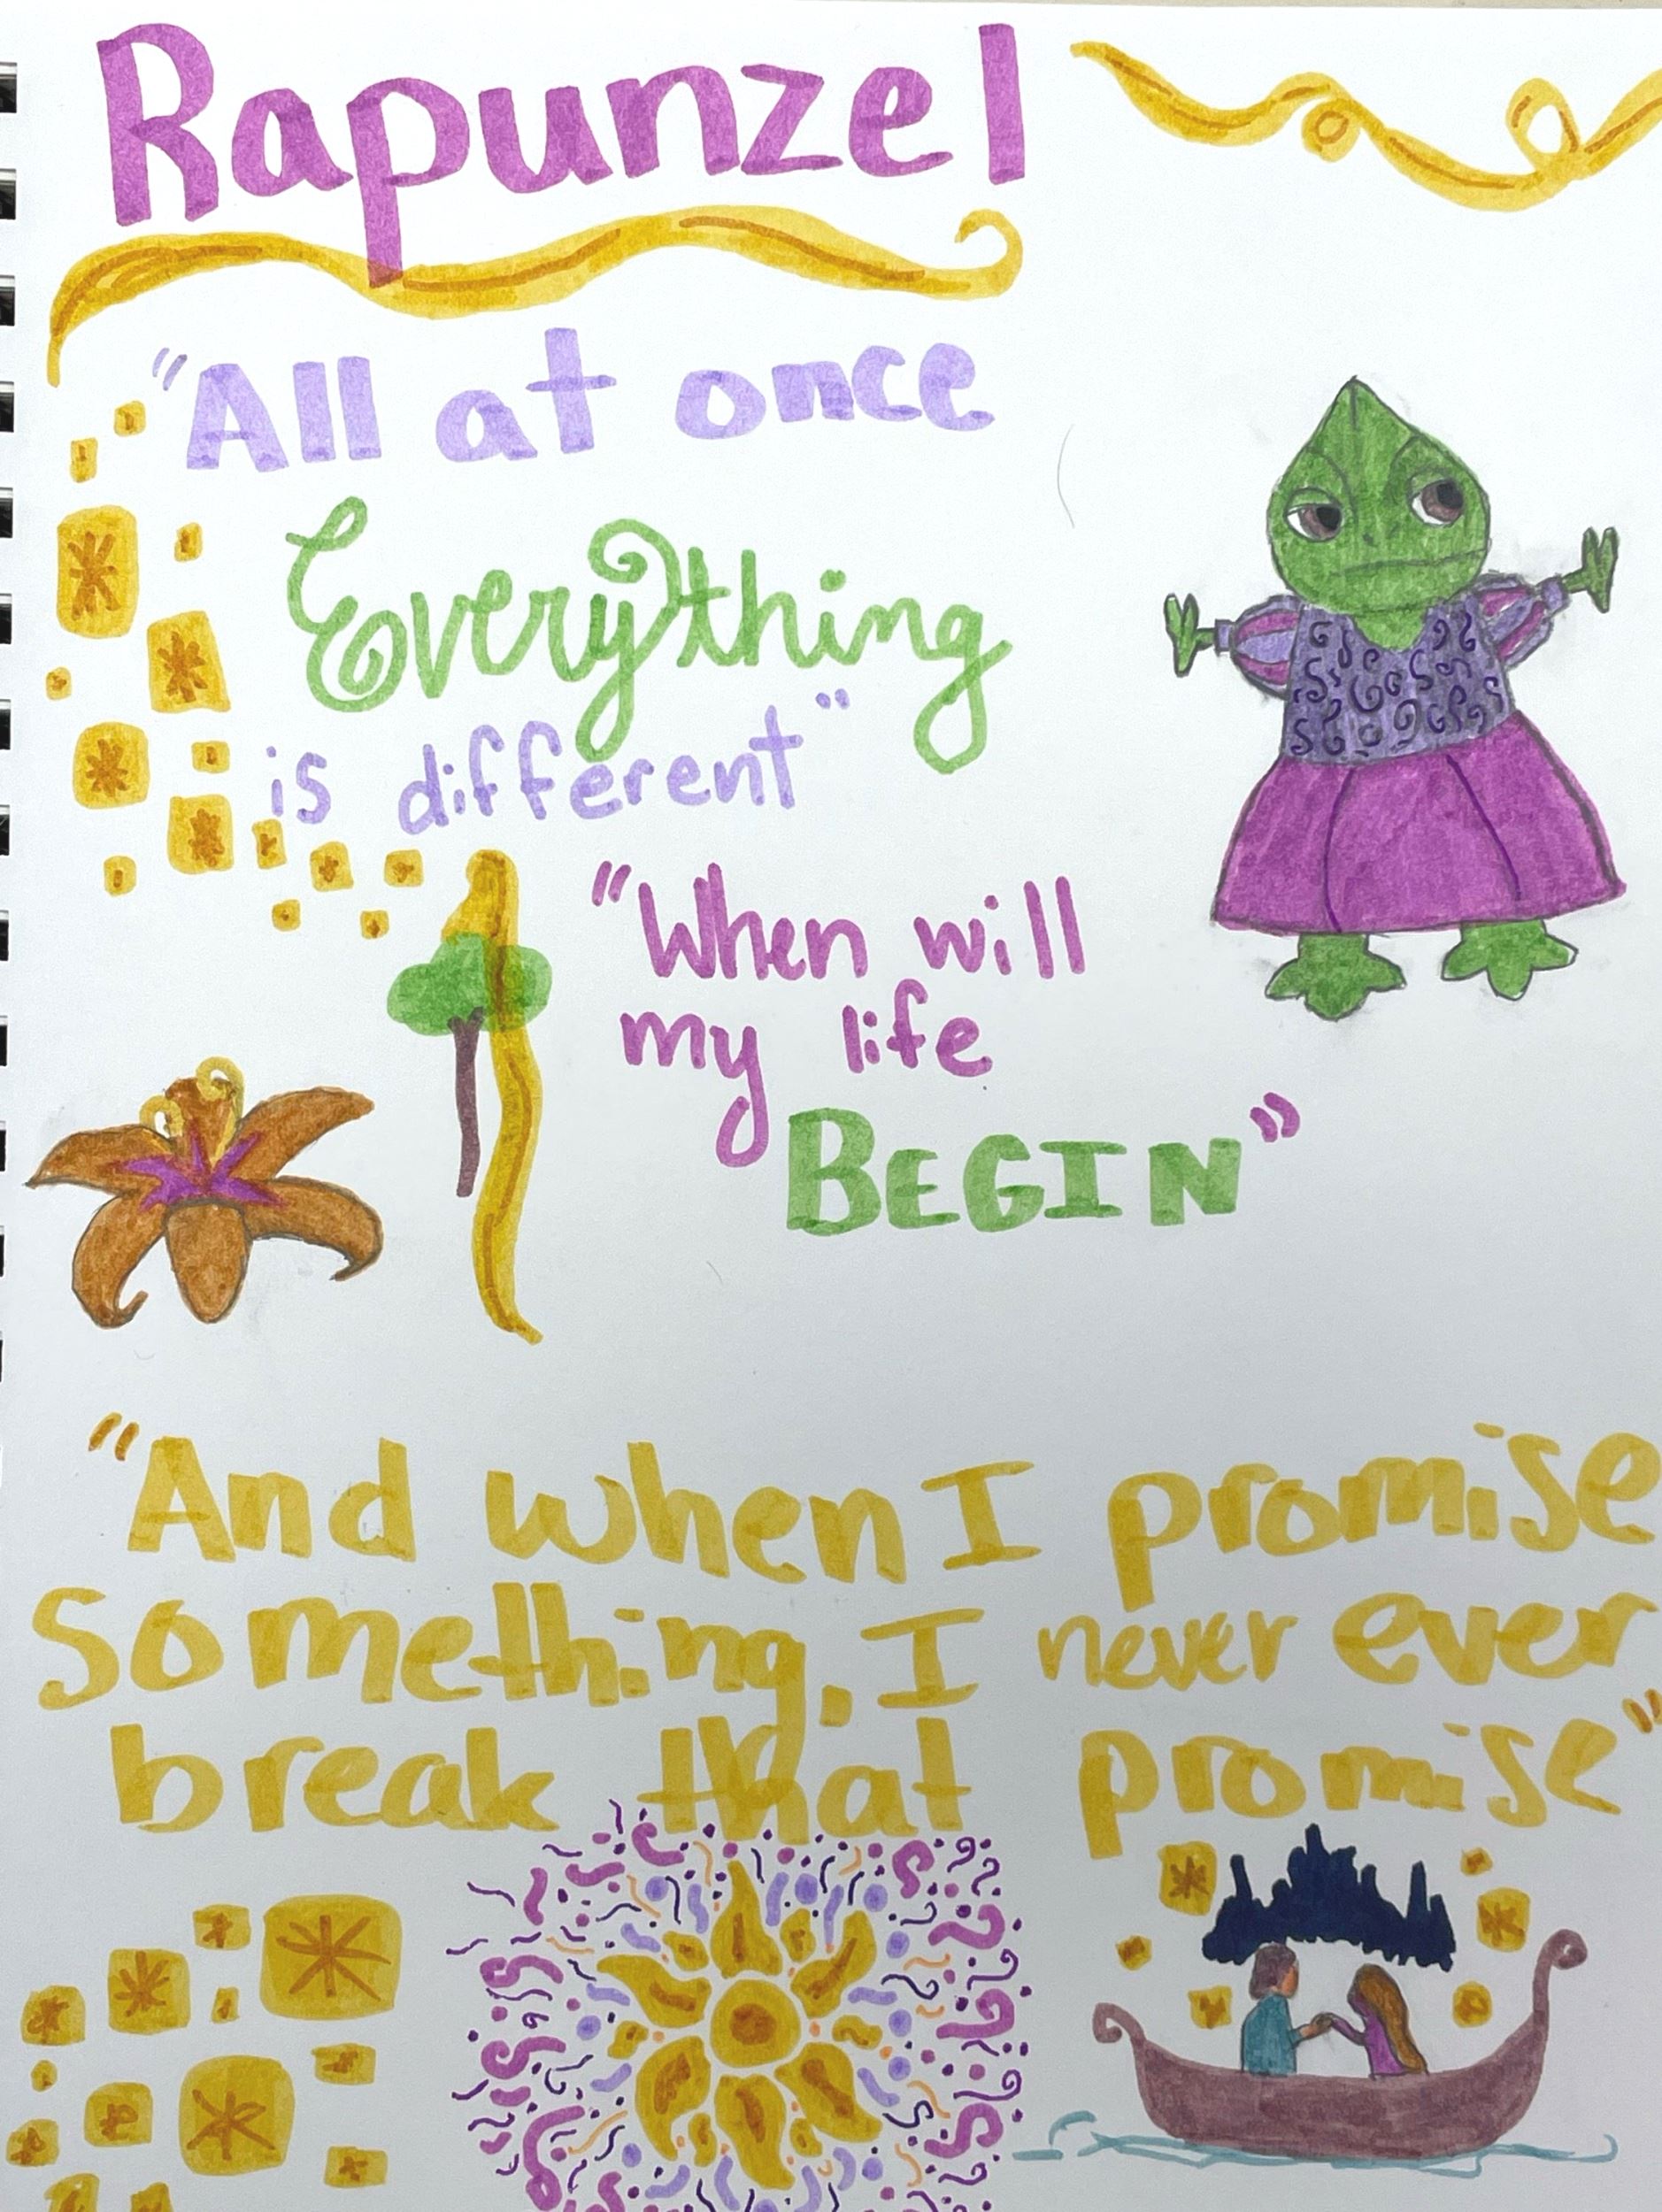 Rapunzel
"All at once
Everything
is different"
"When will
my life
BEGIN"
"And when I promise
something, I never ever
break that promise"